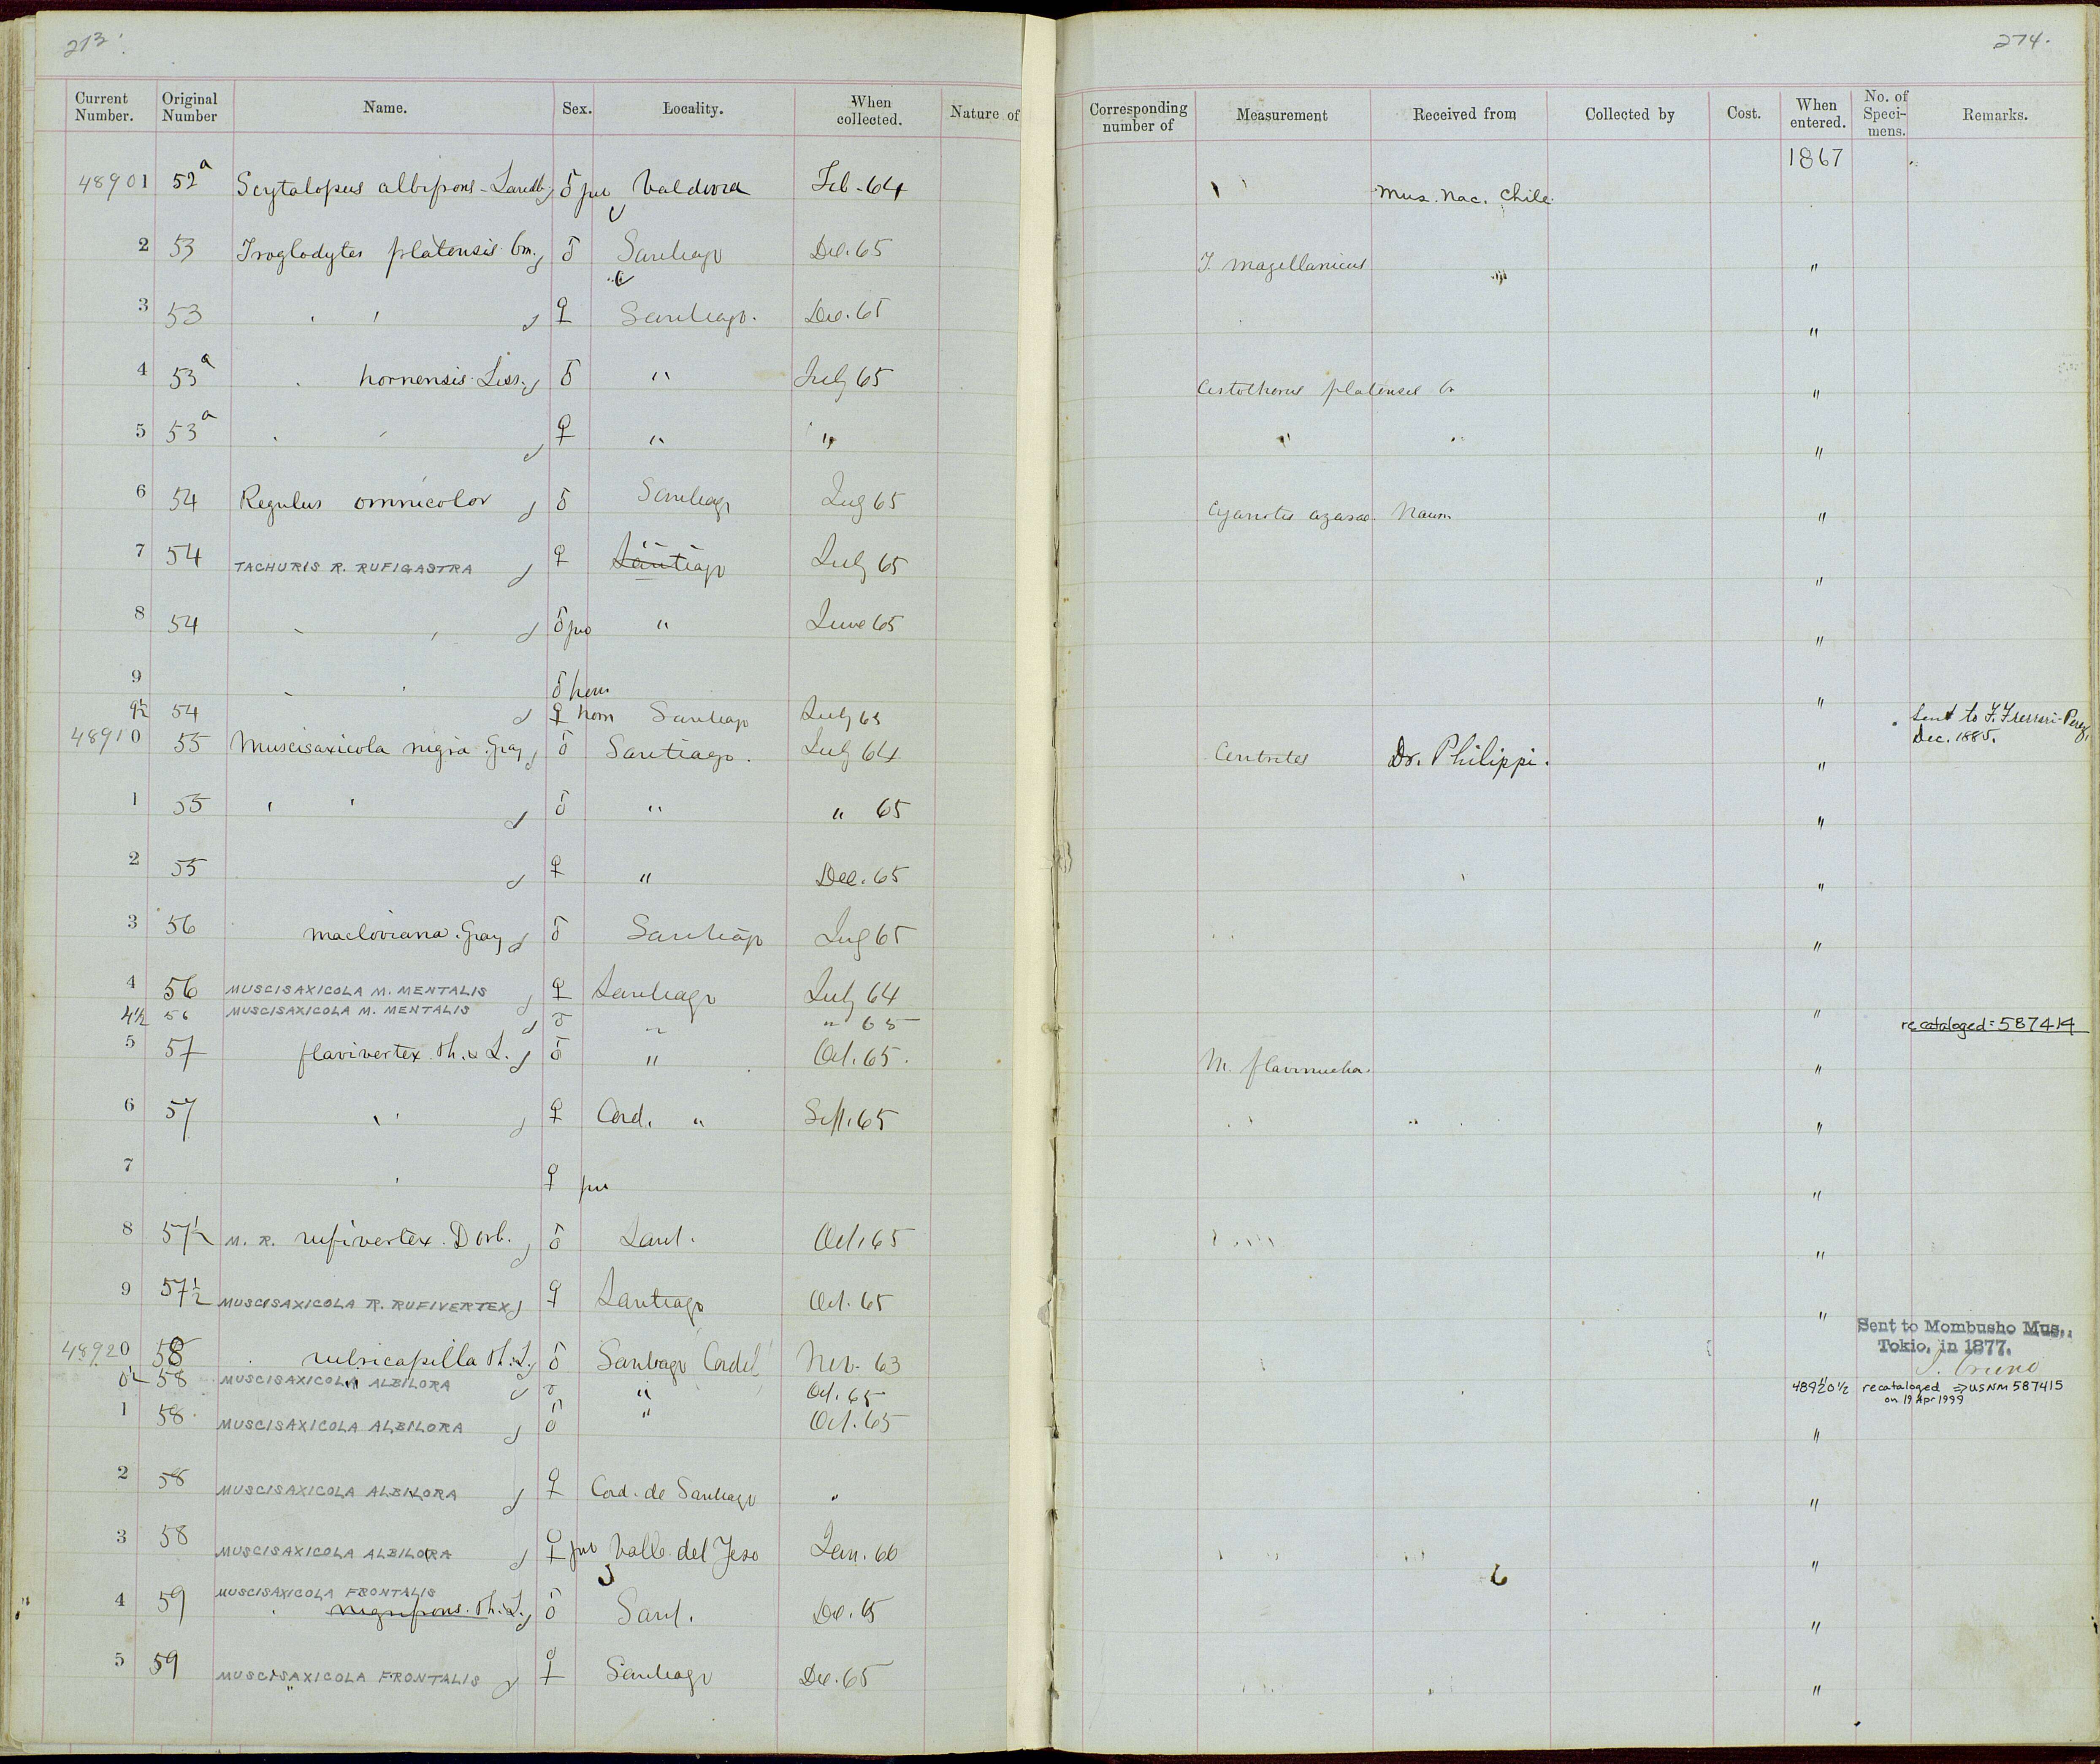 273.
274.
Current Number. Original Number Name. Sex. Locality. When collected. Nature of Corresponding number of Measurement Received from Collected by Cost. When entered. No. of Specimens. Remarks.
1867
48901 52a Scytalopus albifrons - Landb. ♂ juv Valdivia Feb - 64 Mus. Nac. Chile.
2 53 Troglodytes platensis Gm. ♂ Santiago Dec. 65 T. magellanicus "
3 53 ' ' ♀ Santiago. Dec. 65 "
4 53a hornensis Less. ♂ " July 65 Cistothorus platensis "
5 53a ♀ " " " "
6 54 Regulus omnicolor ♂ Santiago Aug 65 Cyanotis azarae. Naum. "
7 54 TACHURIS R. RUFIGASTRA ♀ Santiago July 65 "
8 54 ♂ juv " June 65 "
9 ♂ horn "
9½ 54 ♀ horn Santiago July 65 Sent to F. Ferrari-Perez,
Dec. 1885.
48910 55 Muscisaxicola nigra Gray ♂ Santiago. July 64 Centrites Dr. Philippi. "
1 55 ' ' ♂ " " 65 "
2 55 ♀ " Dec. 65 "
3 56 macloviana. Gray ♂ Santiago Aug 65 "
4 56 MUSCISAXICOLA M. MENTALIS ♀ Santiago July 64 "
4½ 56 MUSCISAXICOLA M. MENTALIS ♂ " " 65 recataloged = 587414
5 57 flavivertex. Ph. & L. ♂ " Oct. 65. M. flavinucha. "
6 57 ' ' ♀ Cord. " Sept. 65 "
7 ' ♀ juv "
8 57½ M. R. rufivertex. D'orb. ♂ Sant. Oct. 65 "
9 57½ MUSCISAXICOLA R. RUFIVERTEX ♀ Santiago Oct. 65 "
Sent to Mombusho Mus.,
Tokio, in 1877.
48920 58 rubricapilla Ph. L. ♂ Santiago Cordil Nov. 63
0½ 58 MUSCISAXICOLA ALBILORA ♂ " Oct. 65 48920½ recataloged ⇒ USNM 587415
on 19 Apr 1999
1 58 MUSCISAXICOLA ALBILORA ♂ " Oct. 65 "
2 58 MUSCISAXICOLA ALBILORA ♀ Cord. de Santiago " "
3 58 MUSCISAXICOLA ALBILORA ♀ juv Valle del Yeso Jan. 66 "
MUSCISAXICOLA FRONTALIS
4 59 nigrifrons. Ph. & L. ♂ Sant. Dec. 65 "
5 59 MUSCISAXICOLA FRONTALIS ♀ Santiago Dec. 65 "